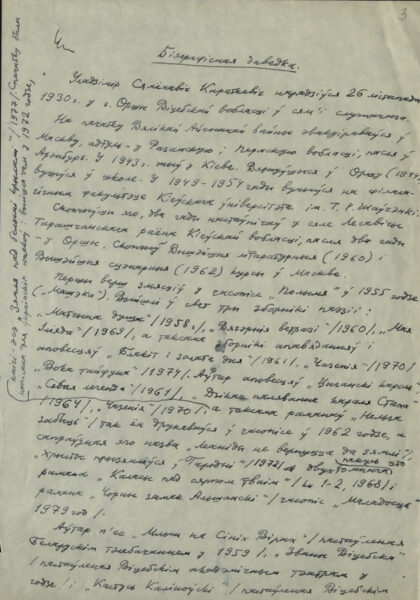 3
Біяграфічная даведка.
Уладзімір Сямёнавіч Караткевіч нарадзіўся 26 лістапада
1930 г. у г. Оршы Віцебскай вобласці ў сям'і служачага.
На пачатку Вялікай Айчыннай вайны эвакуіраваўся ў
Маскву, адтуль - у Разанскую і Пермскую вобласці, пасля ў
Арэнбург. У 1943 г. жыў у Кіеве. Вярнуўшыся ў Оршу (1944),
вучыўся ў школе. У 1949-1954 гады вучыўся на філала-
гічным факультэце Кіеўскага ўніверсітэта ім. Т. Р. Шаўчэнкі.
Скончыўшы яго, два гады настаўнічаў у сяле Лесавічы
Таращчанскага раёна Кіеўскай вобласці, пасля два гады
- у Оршы. Скончыў Вышэйшыя літаратурныя (1960) і
Вышэйшыя сцэнарныя (1962) курсы ў Маскве.
Першы верш змясціў у часопісе "Полымя" ў 1955 годзе
("Машэка"). Выйшлі ў свет тры зборнікі паэзіі:
"Матчына душа" /1958/, "Вячэрнія ветразі" /1960/, "Мая
Іліяда" /1969/, а таксама зборнікі апавяданняў і
аповесцяў "Блакіт і золата дня" /1961/, "Чазенія" /1970/
/1974/. Аўтар аповесцяў "Цыганскі кароль",
"Сівая легенда" /1961/, "Дзікае паляванне караля Стаха"
/1964/, "Чазенія" /1970/, а таксама раманаў "Нельга
забыць" /так ён друкаваўся ў часопісе ў 1962 годзе, а
сапраўдная яго назва "Леаніды не вернуцца да Зямлі"/,
"Хрыстос прызямліўся ў Гародні" /1972/,
рамана "Каласы пад сярпом тваім" / 1-2, 1968/ і
рамана "Чорны замак Альшанскі" /часопіс "Маладосць"
1979 год/.
Аўтар п'ес "Млын на Сініх Вірах" /пастаўлена
Беларускім тэлебачаннем у 1959/, "Званы Віцебска"
/пастаўлена Віцебскім акадэмічным тэатрам у
годзе/ і "Кастусь Каліноўскі" /пастаўлена Віцебскім